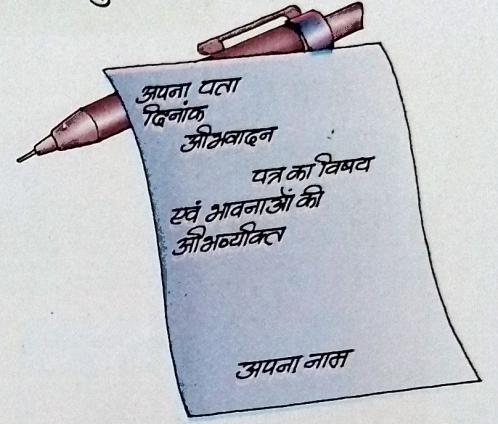 अपना पता
दिनांक
अभिवादन
पत्र का विषय
एवं भावनाओं की
अभिव्यक्ति
अपना नाम